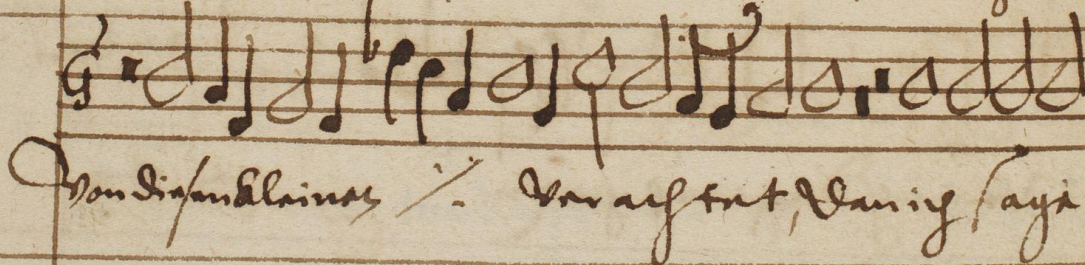 von diesen kleinen ∕. verachtet, dan ich sage